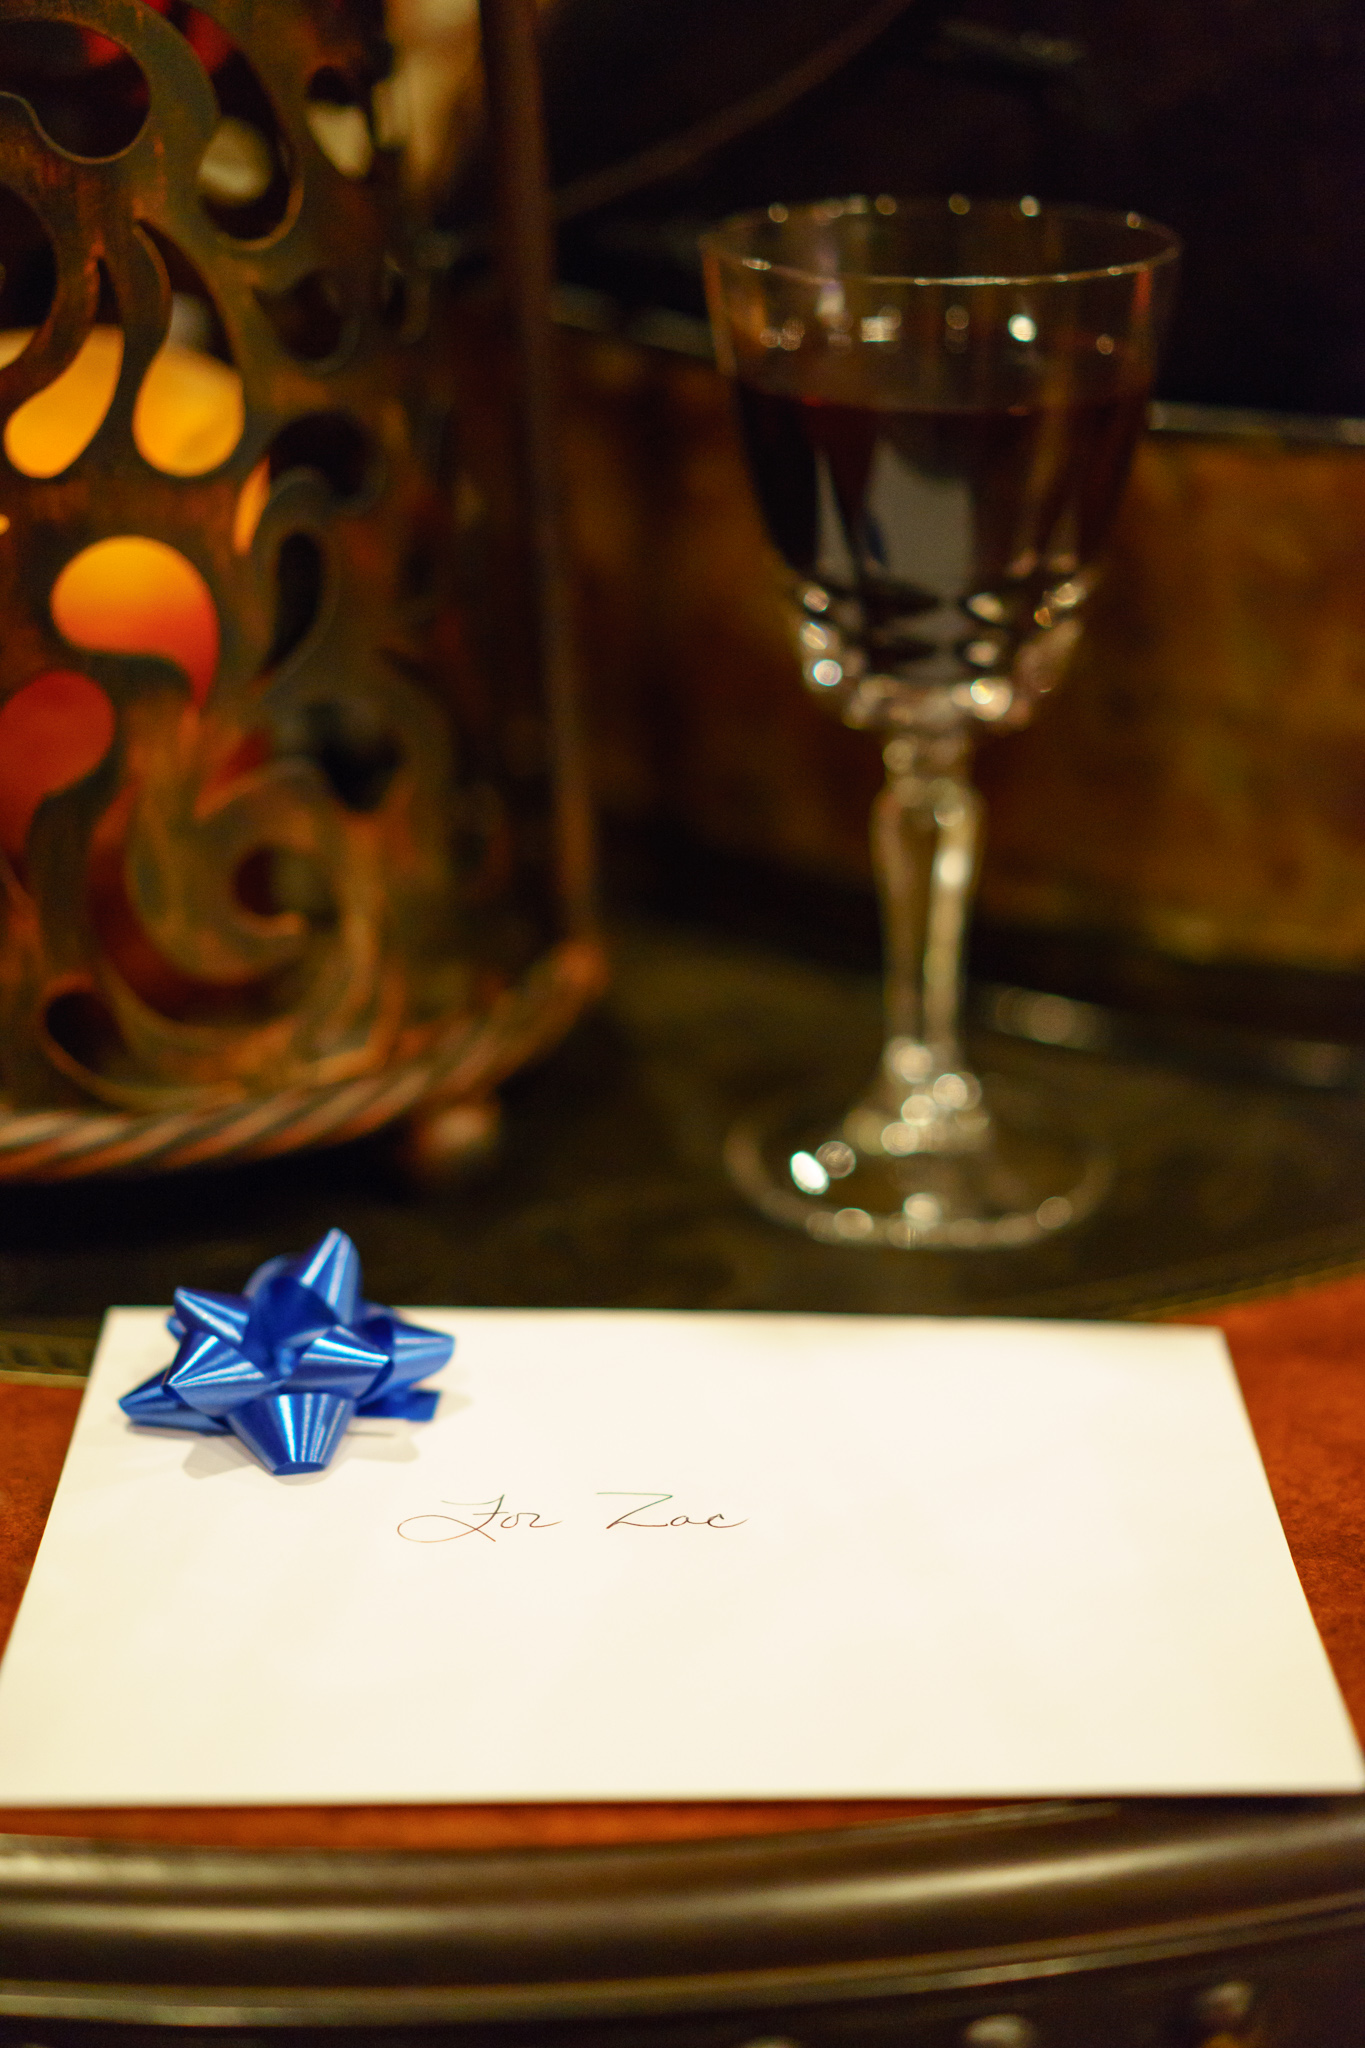 For Zac